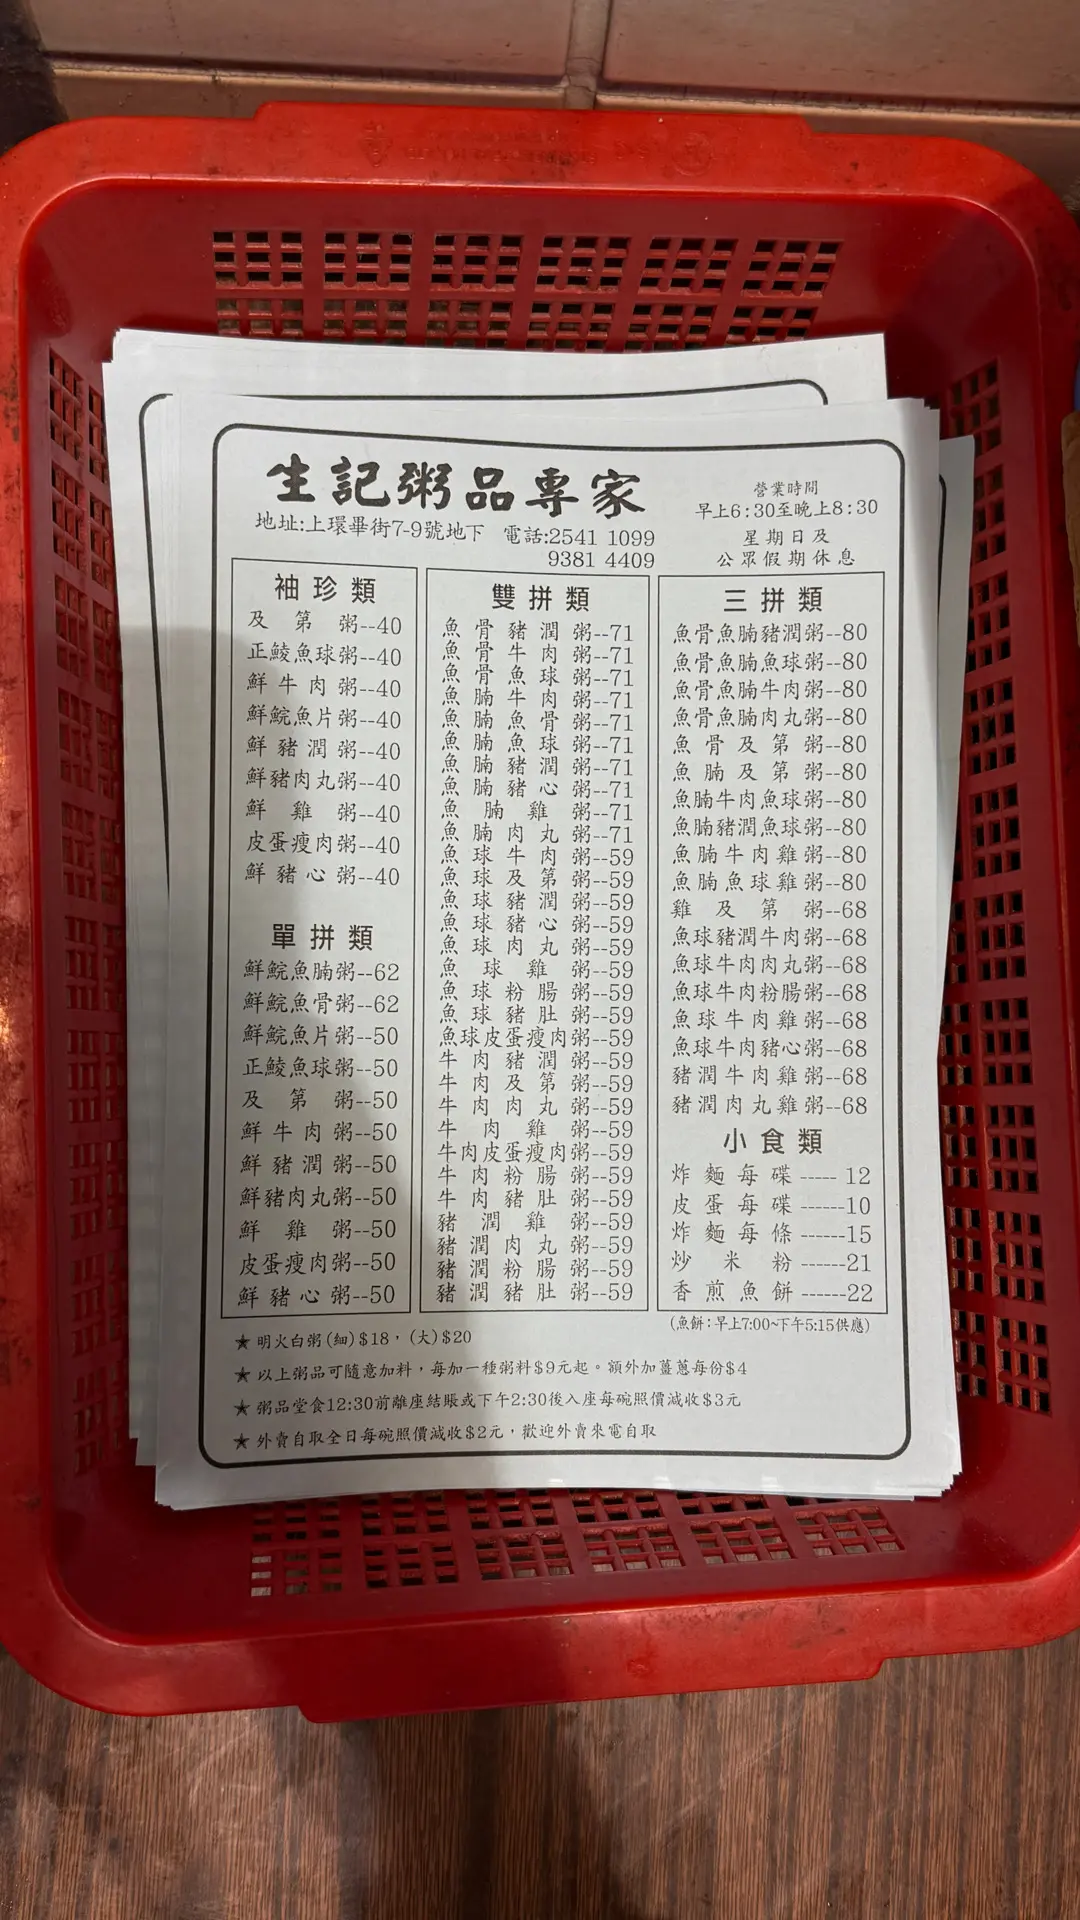 生記粥品專家
地址:上環畢街7-9號地下 電話:2541 1099
9381 4409
營業時間
早上6:30至晚上8:30
星期日及
公眾假期休息
袖珍類
及第粥--40
正鯪魚球粥--40
鮮牛肉粥--40
鮮鯇魚片粥--40
鮮豬潤粥--40
鮮豬肉丸粥--40
鮮雞粥--40
皮蛋瘦肉粥--40
鮮豬心粥--40
單拼類
鮮鯇魚腩粥--62
鮮鯇魚骨粥--62
鮮鯇魚片粥--50
正鯪魚球粥--50
及第粥--50
鮮牛肉粥--50
鮮豬潤粥--50
鮮豬肉丸粥--50
鮮雞粥--50
皮蛋瘦肉粥--50
鮮豬心粥--50
雙拼類
魚骨豬潤粥--71
魚骨牛肉粥--71
魚骨魚球粥--71
魚腩牛肉粥--71
魚腩魚骨粥--71
魚腩魚球粥--71
魚腩豬潤粥--71
魚腩豬心粥--71
魚腩雞粥--71
魚腩肉丸粥--71
魚球牛肉粥--59
魚球及第粥--59
魚球豬潤粥--59
魚球豬心粥--59
魚球肉丸粥--59
魚球雞粥--59
魚球粉腸粥--59
魚球豬肚粥--59
魚球皮蛋瘦肉粥--59
牛肉豬潤粥--59
牛肉及第粥--59
牛肉肉丸粥--59
牛肉雞粥--59
牛肉皮蛋瘦肉粥--59
牛肉粉腸粥--59
牛肉豬肚粥--59
豬潤雞粥--59
豬潤肉丸粥--59
豬潤粉腸粥--59
豬潤豬肚粥--59
三拼類
魚骨魚腩豬潤粥--80
魚骨魚腩魚球粥--80
魚骨魚腩牛肉粥--80
魚骨魚腩肉丸粥--80
魚骨及第粥--80
魚腩及第粥--80
魚腩牛肉魚球粥--80
魚腩豬潤魚球粥--80
魚腩牛肉雞粥--80
魚腩魚球雞粥--80
雞及第粥--68
魚球豬潤牛肉粥--68
魚球牛肉肉丸粥--68
魚球牛肉粉腸粥--68
魚球牛肉雞粥--68
魚球牛肉豬心粥--68
豬潤牛肉雞粥--68
豬潤肉丸雞粥--68
小食類
炸麵每碟-----12
皮蛋每碟------10
炸麵每條------15
炒米粉------21
香煎魚餅------22
(魚餅:早上7:00~下午5:15供應)
★明火白粥(細)$18，(大)$20
★以上粥品可隨意加料，每加一種粥料$9元起。額外加薑蔥每份$4
★粥品堂食12:30前離座結賬或下午2:30後入座每碗照價減收$3元
★外賣自取全日每碗照價減收$2元，歡迎外賣來電自取